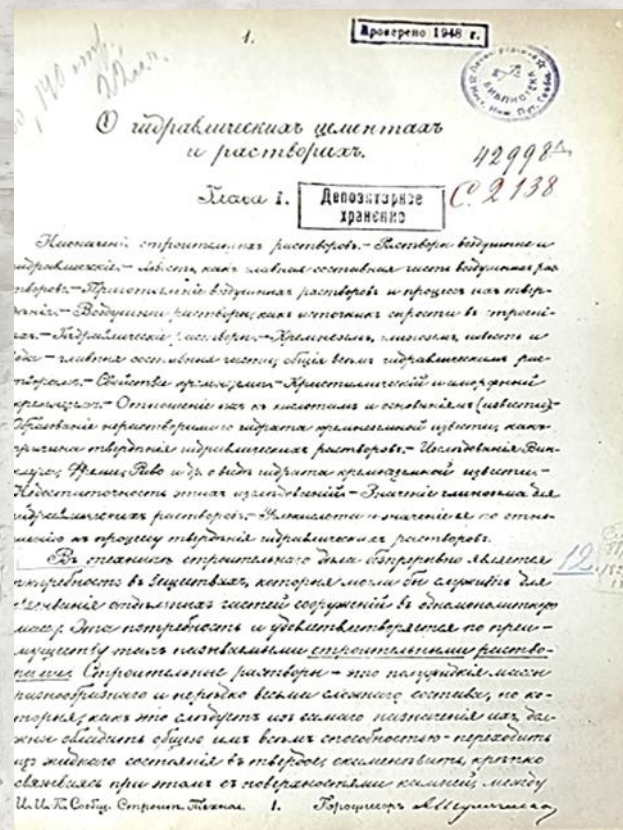 1.
Проверено 1948 г.
БИБЛИОТЕКА
О гидравлическихъ цементахъ
и растворахъ.
42998
Глава I.
Депозитарное
хранение
С. 2138
Назначенiе строительныхъ растворовъ. – Растворы воздушные и
гидравлическiе. – Известь, какъ главная составная часть воздушныхъ рас-
творовъ. – Приготовленiе воздушныхъ растворовъ и процессъ ихъ твер-
денiя. – Воздушные растворы, какъ источникъ сырости въ строенi-
яхъ. – Гидравлическiе растворы. – Кремнеземъ, глиноземъ, известь и
вода – главныя составныя части, общiя всемъ гидравлическимъ рас-
творамъ. – Свойства кремнезема. – Кристаллическiй и аморфный
кремнеземъ. – Отношенiе ихъ къ кислотамъ и основанiямъ (извести). –
Образованiе нерастворимаго гидрата кремнеземной извести, какъ
причина твердѣнiя гидравлическихъ растворовъ. – Изслѣдованiя Вин-
клера, Фреми, Риво и др. о видѣ гидрата кремнеземной извести. –
Недостаточность этихъ изслѣдованiй. – Значенiе глинозема для
гидравлическихъ растворовъ. – Углекислота и значенiе ея по отно-
шенiю къ процессу твердѣнiя гидравлическихъ растворовъ.
Въ техникѣ строительнаго дѣла безпрерывно является
потребность въ веществахъ, которыя могли бы служить для
связыванiя отдѣльныхъ частей сооруженiй въ одномонолитную
массу. Эта потребность и удовлетворяется по преи-
муществу такъ называемыми строительными раство-
рами. Строительные растворы – это полужидкiя массы
разнообразнаго и нерѣдко весьма сложнаго состава, но ко-
торыя, какъ это слѣдуетъ изъ самаго назначенiя ихъ, дол-
жны обладать общею имъ всемъ способностью – переходить
изъ жидкаго состоянiя въ твердое, окаменѣвать, крѣпко
связываясь при этомъ съ поверхностями камней, между
12.
И. И. П. Сообщ. Строит. Технол. 1. Профессоръ